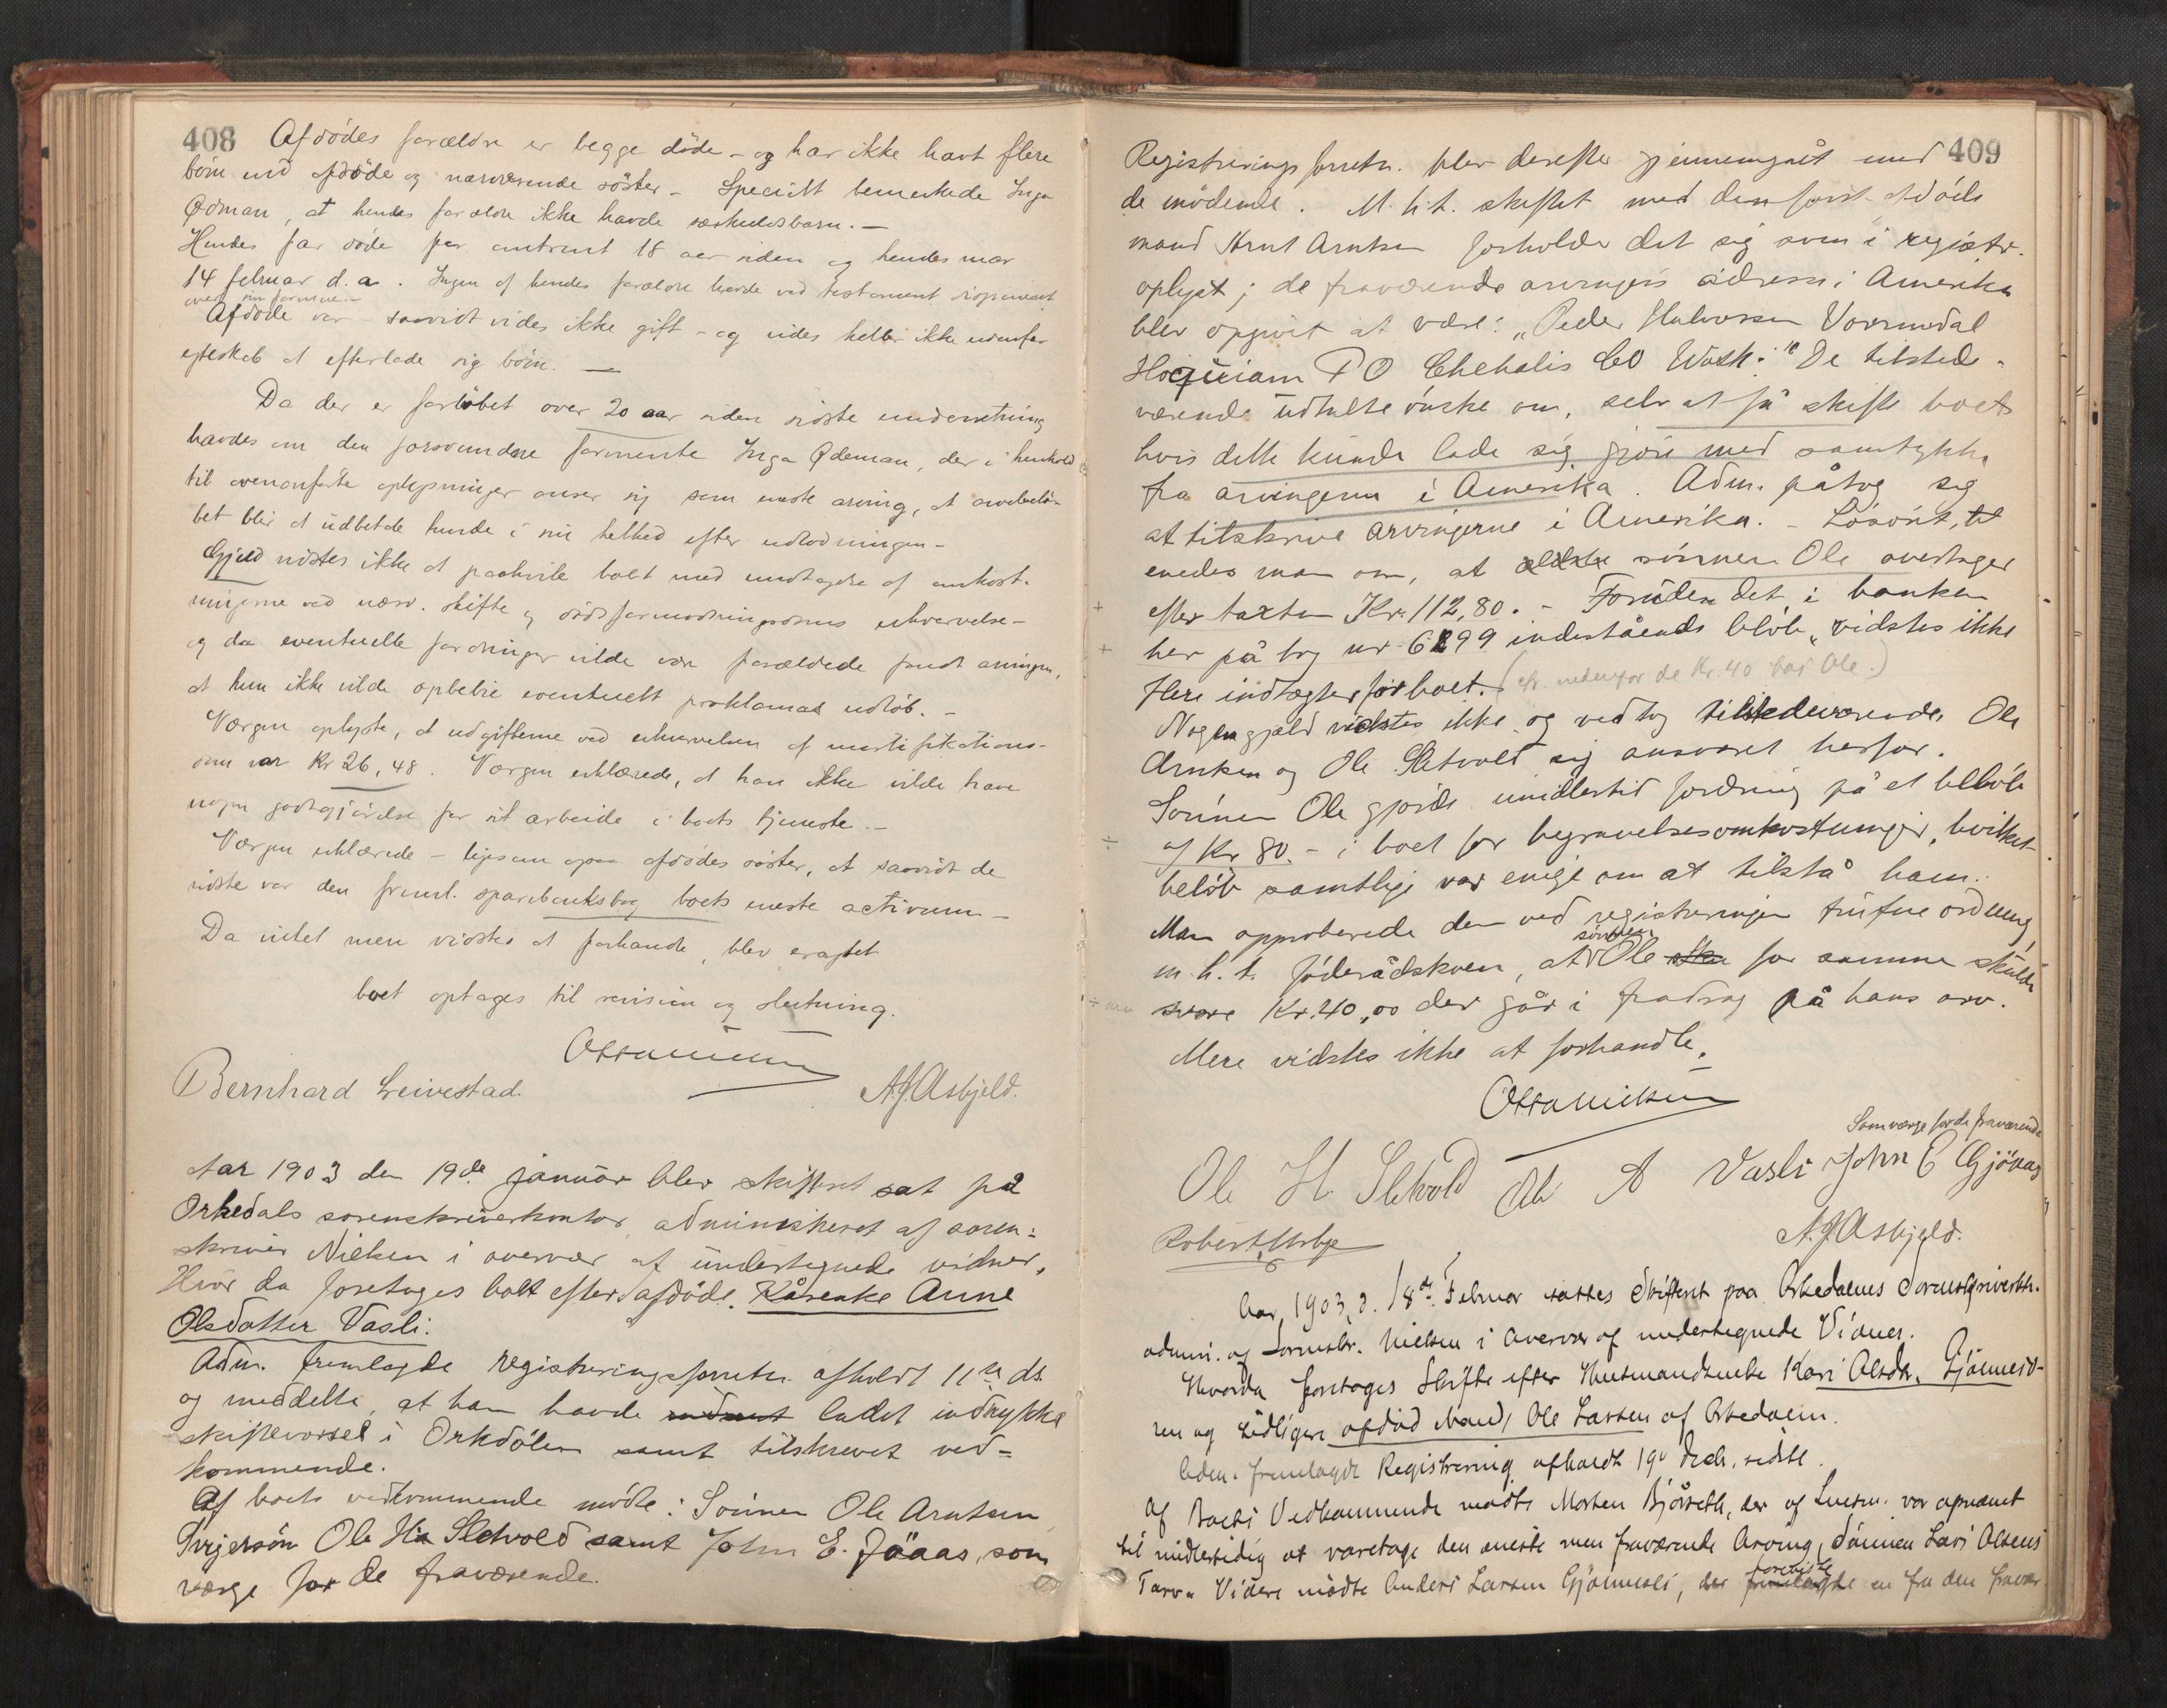 408 Afdødes forældre er begge døde – og har ikke havt flere
børn end afdøde og nærværende søster – Specielt bemerkede Inga
Ødman, at hendes forældre ikke havde særkuldsbarn. –
Hendes far døde for omtrent 18 aar siden og hendes mor
14 februar d.a. Ingen af hendes forældre havde ved testament disponeret
over sin formue. –
Afdøde var saavidt vides ikke gift – og vides heller ikke udenfor
egteskab at efterlade sig børn. –
Da der er forløbet over 20 aar siden sidste underretning
havdes om den forsvundne formente Inga Ødeman, der i henhold
til ovenanførte oplysninger anser sig som eneste arving, at arvebelø-
bet blir at udbetale hende i sin helhed efter udlodningen –
Gjeld vistes ikke at paahvile boet med undtagelse af omkost-
ningerne ved nærv. skifte og dødsformodningsdoms erhvervelse –
og da eventuelle fordringer vilde være forældede fandt arvingen,
at hun ikke vilde opbebie eventuelt proklamas udløb. –
Værgen oplyste, at udgifterne ved erhvervelsen af mortifikations-
dom var Kr 26,48. Værgen erklærede, at han ikke vilde have
nogen godtgjørelse for sit arbeide i boets tjeneste. –
Værgen erklærede – ligesom ogsaa afdødes søster, at saavidt de
vidste var den freml. sparebanksbog boets eneste activum –
Da intet mere vistes at forhandle, blev eragtet
boet optages til revision og slutning.
Otto Nielsen
Bernhard Leivestad. A.J. Asbjeld.
Aar 1903 den 19de januar blev skifteret sat på
Orkedals sorenskriverkontor administreret af soren-
skriver Nielsen i overvær af undertegnede vidner,
Hvor da foretoges boet efter afdøde Kårenke Anne
Olsdatter Vasli.
Adm. fremlagde registreringsforretn. afholdt 11te ds
og meddelte, at han havde ladet indrykke
skiftevarsel i Orkdølen samt tilskrevet ved-
kommende.
Af boets vedkommende mødte: Sønnen Ole Arntsen
Svigersøn Ole H Sletvold samt John E. Jöaas, som
værge for de fraværende.
409
Registreringsforretn. blev derefter gjennemgåt med
de mødende. M.h.t. skiftet med den først afdøde
mand Arnt Arntsen forholder det sig som i registr.
oplyst; de fraværende arvingers adresse i Amerika
blev opgivet at være: „Peder Halvorsen Vormedal
Hoquiam P O Chehalis Co Wash." De tilstede-
værende udtalte ønske om, selv at få skifte boet
hvis dette kunde lade sig gjøre med samtykke
fra arvingerne i Amerika. Adm. påtog sig
at tilskrive arvingerne i Amerika. – Løsøret,
enedes man om, at ældste sønnen Ole overtager
+ efter taxten Kr. 112,80. – Foruden det i banken
+ her på bog nr 6299 indestående beløb, vidstes ikke
flere indtægter for boet. (cfr. nedenfor de Kr. 40 hos Ole.)
Nogen gjæld vidstes ikke og vedtog tilstedeværende Ole
Arntsen og Ole Sletvold sig ansvaret herfor.
Sønnen Ole gjorde imidlertid fordring på et beløb
÷ af Kr 80. – i boet for begravelsesomkostninger, hvilket
beløb samtlige var enige om at tilstå ham.
Man approberede den ved registreringen trufne ordning
m.h.t. föderådskoen, at sønnen Ole for samme skulde
svare Kr. 40,00 der går i fradrag på hans arv.
Mere vidstes ikke at forhandle.
Otto Nielsen
Som værge for de fraværende
Ole H. Sletvold Ole A Vasli John E Gjöaas
Robert A.J. Asbjeld.
Aar 1903, d. 18de Februar sattes Skifteret paa Orkedalens Sorenskriverktr.
admin. af Sorenskr. Nielsen i Overvær af undertegnede Vidner.
Hvorda foretoges Skifte efter Husmandsenke Kari Olsdtr. Gjønnesli-
ren og tidligere afdød Mand, Ole Larsen af Orkedalen.
Adm. fremlagde Registrering afholdt 19de Decbr. sidstl.
Af Boets Vedkommende mødte Morten Bjørseth, der af Lensm. var opnævnt
til midlertidig at varetage den eneste men fraværende Arving, Sønnen Lars Olsens
Tarv. Videre mødte Anders Larsen Gjønnesli, der foreviste en fra den fravær